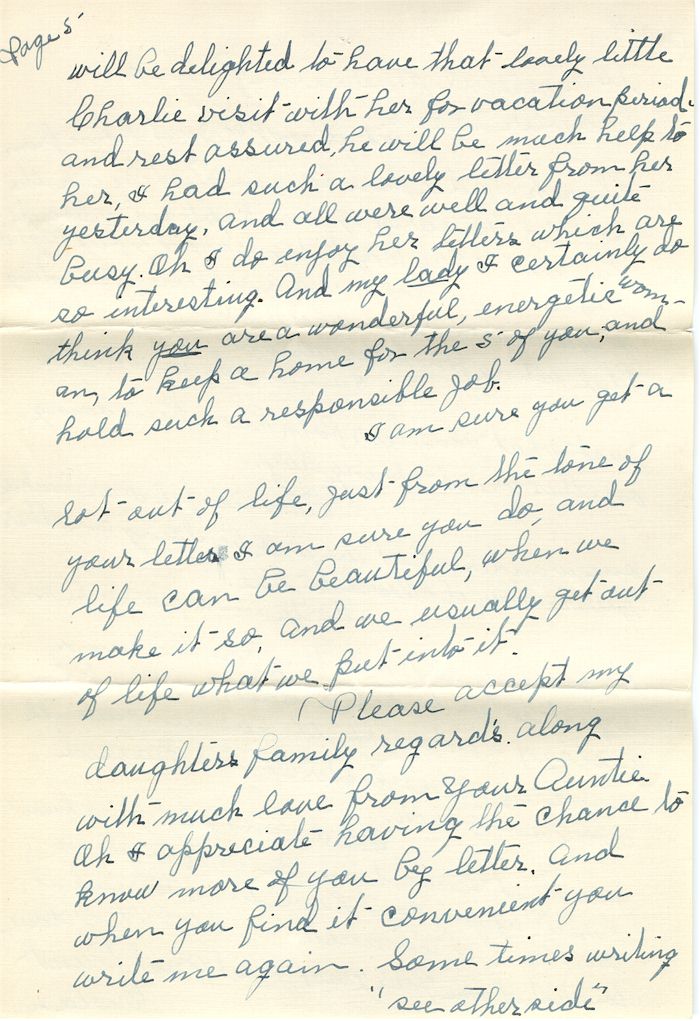 Page 5
will be delighted to have that lovely little
Charlie visit with her for vacation period.
and rest assured, he will be much help to
her, I had such a lovely letter from her
yesterday, and all were well and quite
busy. Oh I do enjoy her letters which are
so interesting. And my lady I certainly do
think you are a wonderful, energetic wom-
an, to keep a home for the 5 of you, and
hold such a responsible job.
I am sure you get a
lot out of life, just from the tone of
your letter I am sure you do, and
life can be beautiful, when we
make it so, and we usually get out
of life what we put into it.
Please accept my
daughters family regards. along
with much love from Your Auntie.
Oh I appreciate having the chance to
know more of you by letter. And
when you find it convenient you
write me again. Some times writing
"see other side"